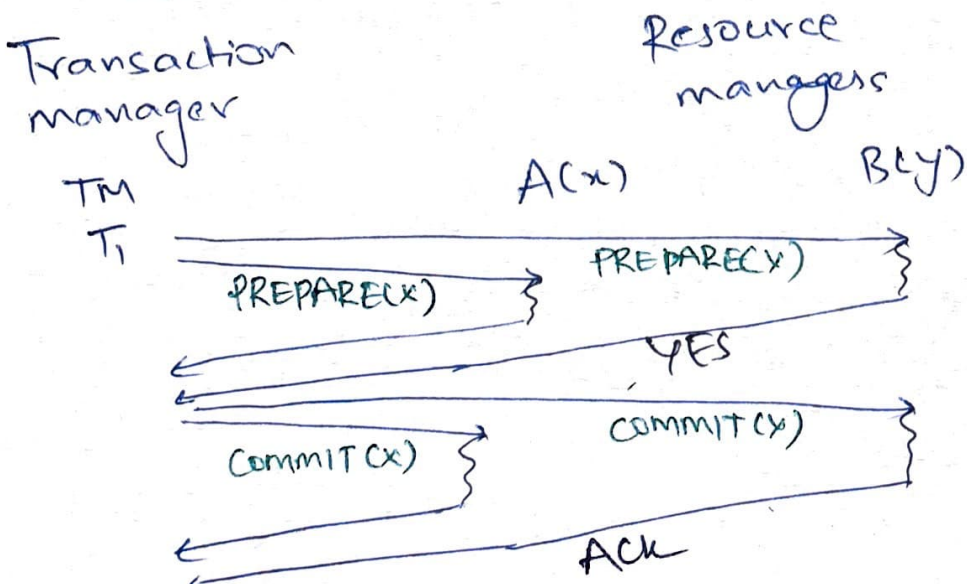 Transaction
manager
Resource
managers
TM
A(x)
B(y)
T1
PREPARE(X)
PREPARE(Y)
YES
COMMIT(X)
COMMIT(Y)
ACK